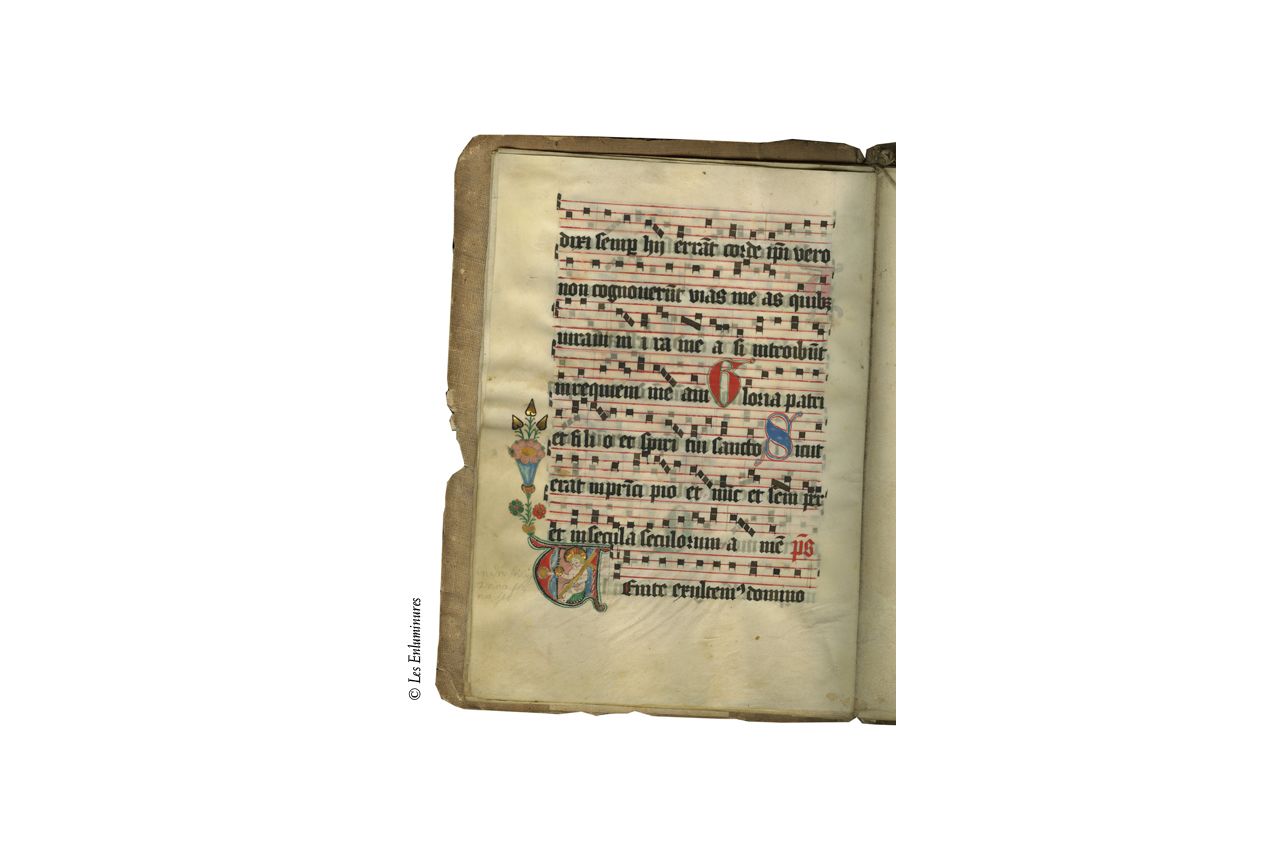 dixi semp hij errāt corde ip̄i vero
non cognouerūt vias me as quibꝫ
iuraui in i ra me a si introibūt
in requiem mēam Gloria patri
et fi li o et spiri tui sancto Sicut
erat in prīci pio et nūc et semper
et in secula seculorum a mē p̄s
Uenite exultemꝰ domino
© Les Enluminures